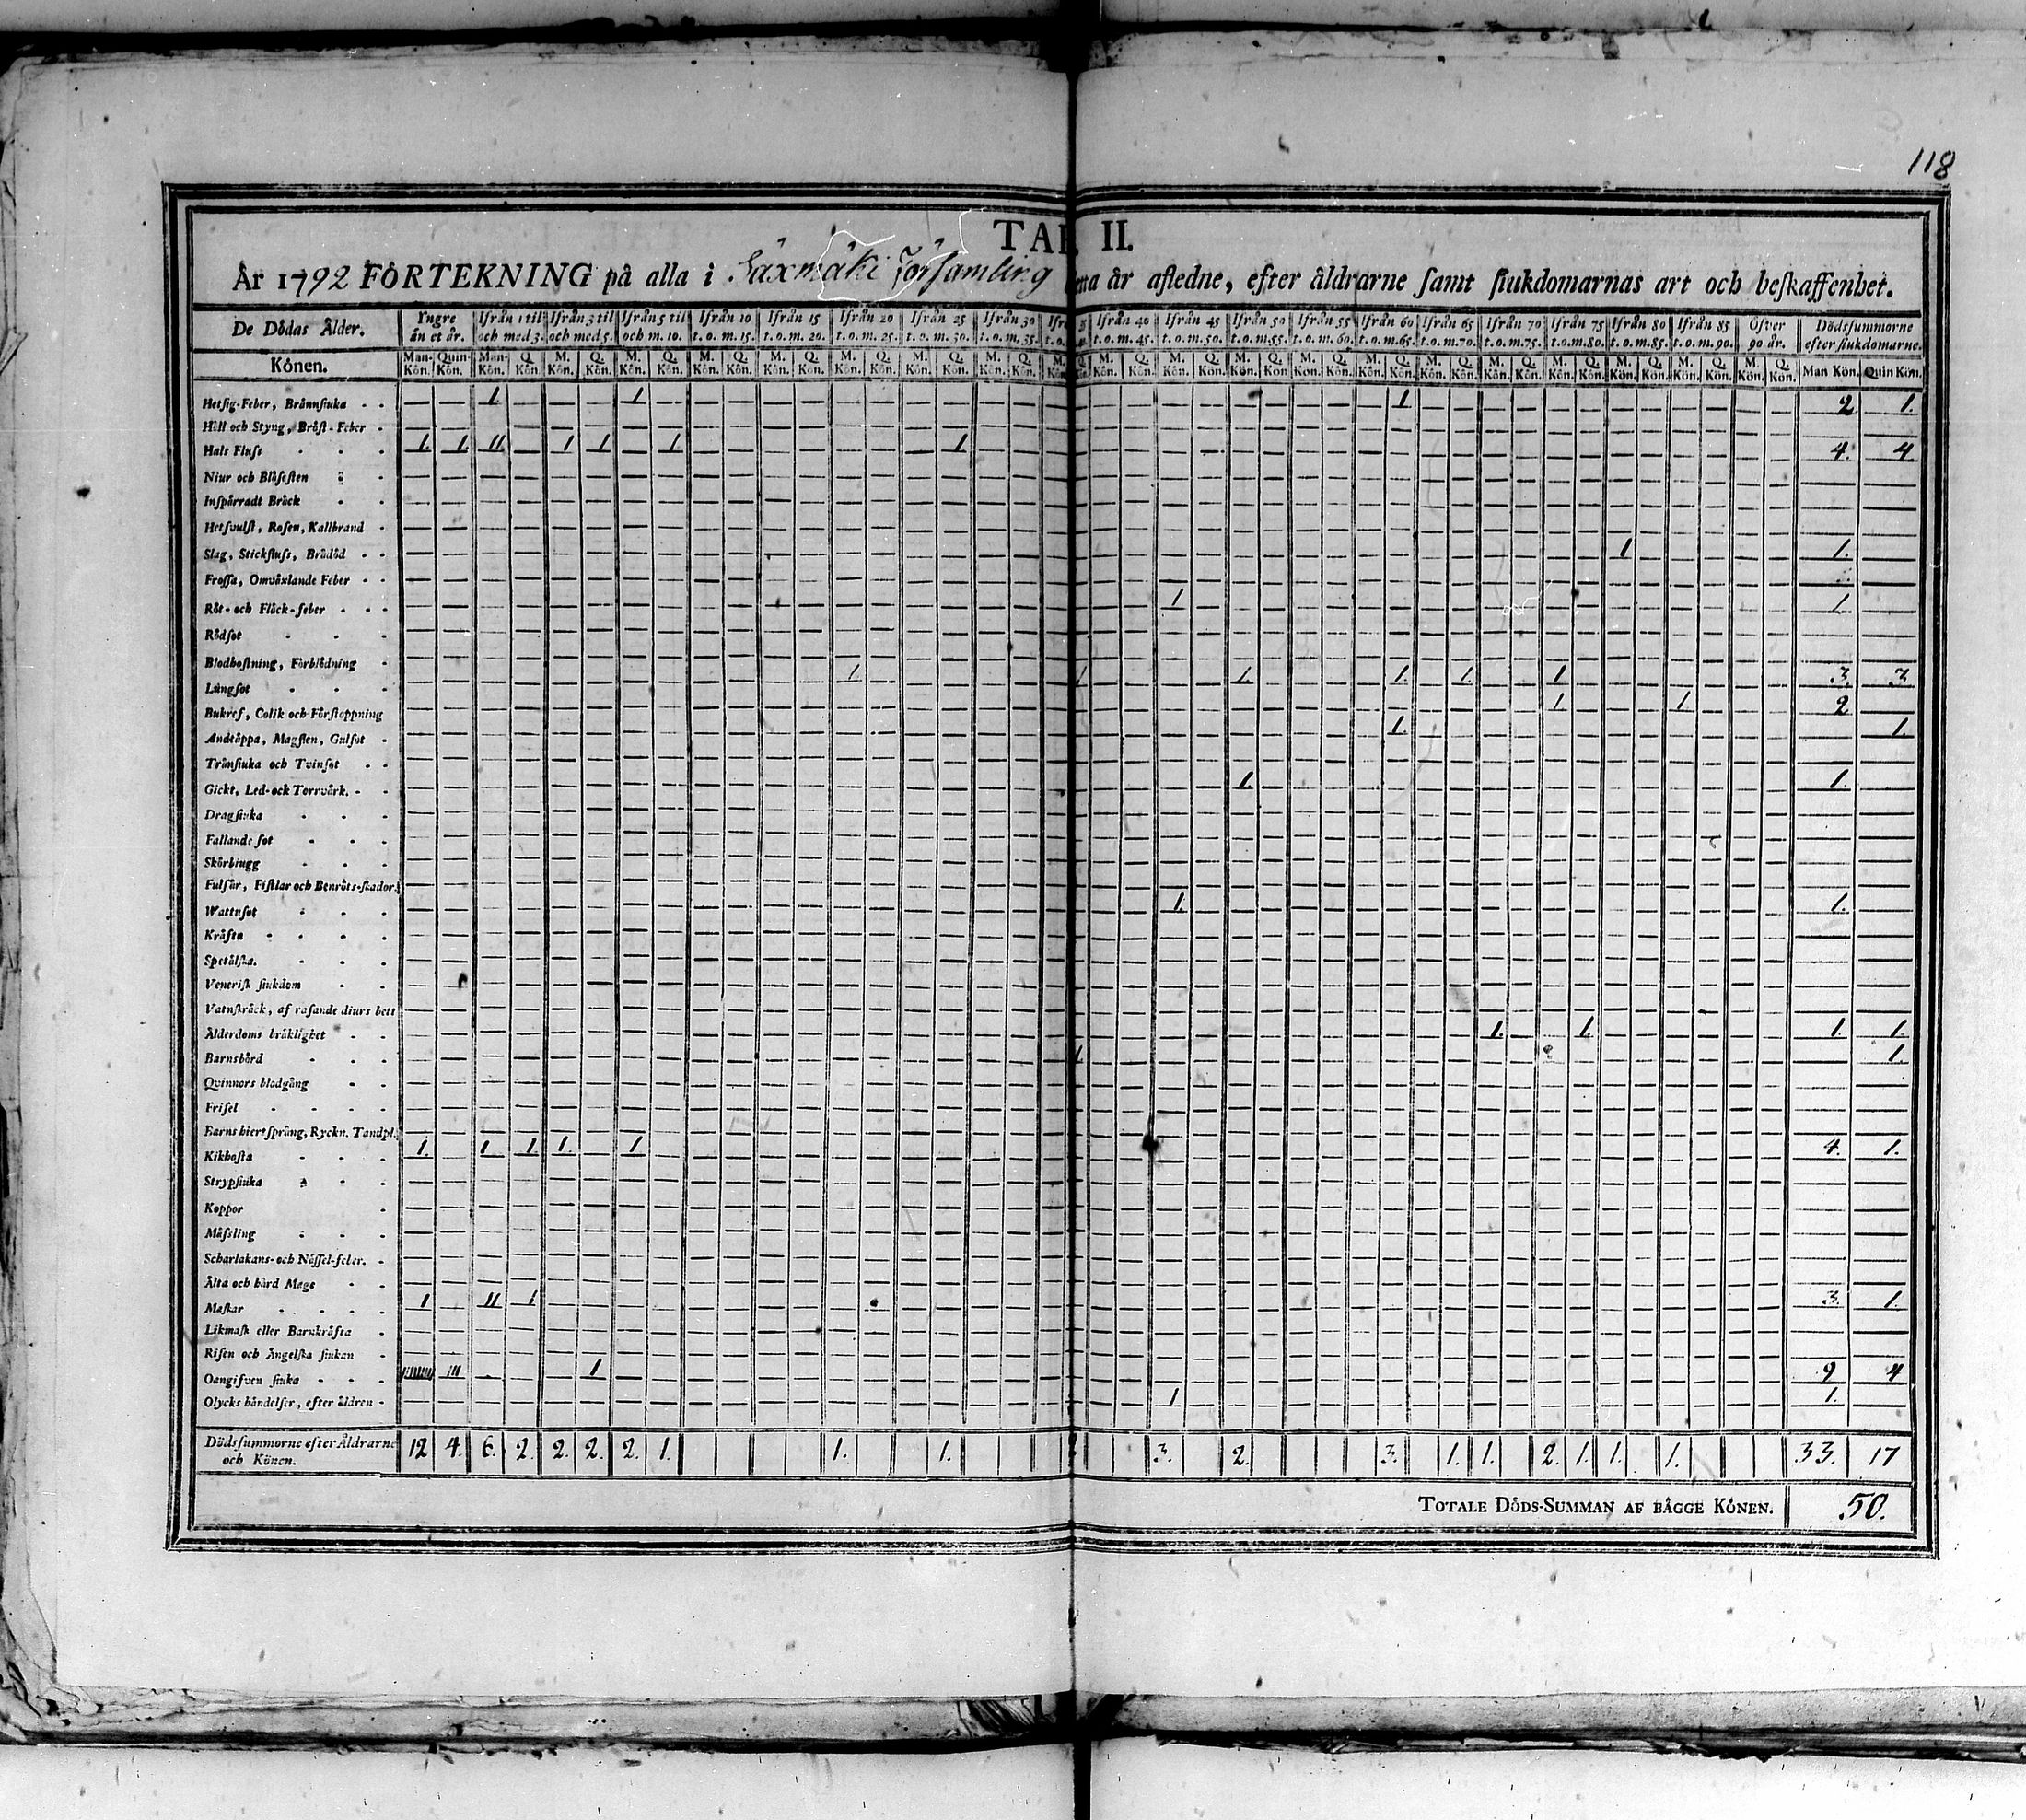 118
TAB. II.
År 1792 FÖRTEKNING på alla i Säxmäki Församling detta år afledne, efter åldrarne samt siukdomarnas art och beskaffenhet.
De Dödas Ålder. Yngre än et år. Ifrån 1 til och med 3. Ifrån 3 til och med 5. Ifrån 5 til och m. 10. Ifrån 10 t.o.m. 15. Ifrån 15 t.o.m. 20. Ifrån 20 t.o.m. 25. Ifrån 25 t.o.m. 30. Ifrån 30 t.o.m. 35. Ifrån 40 t.o.m. 45. Ifrån 45 t.o.m. 50. Ifrån 50 t.o.m. 55. Ifrån 55 t.o.m. 60. Ifrån 60 t.o.m. 65. Ifrån 65 t.o.m. 70. Ifrån 70 t.o.m. 75. Ifrån 75 t.o.m. 80. Ifrån 80 t.o.m. 85. Ifrån 85 t.o.m. 90. Öfver 90 år. Dödssummorne efter siukdomarne.
Könen. Man-Kön. Quin-Kön. Man-Kön. Q. Kön. M. Kön. Q. Kön. M. Kön. Q. Kön. M. Kön. Q. Kön. M. Kön. Q. Kön. M. Kön. Q. Kön. M. Kön. Q. Kön. M. Kön. Q. Kön. M. Kön. Q. Kön. M. Kön. Q. Kön. M. Kön. Q. Kön. M. Kön. Q. Kön. M. Kön. Q. Kön. M. Kön. Q. Kön. M. Kön. Q. Kön. M. Kön. Q. Kön. M. Kön. Q. Kön. M. Kön. Q. Kön. M. Kön. Q. Kön. Man Kön. Quin Kön.
Hetsig-Feber, Brännsiuka - - 1 1 1 2 1.
Håll och Styng, Bröst-Feber -
Hals Fluss - - - 1. 1. 11. 1 1. 1. 1. 4. 4
Niur och Blåsesten -
Inspärradt Bråck - -
Hetsvulst, Rosen, Kallbrand -
Slag, Stickfluss, Brådöd - - 1 1.
Frossa, Omväxlande Feber - -
Röt- och Fläck-feber - - - 1 1.
Rödsot - - -
Blodhostning, Förblödning -
Lungsot - - - 1. 1 1. 1. 1. 1 3. 3
Bukref, Colik och Förstoppning 1 1 2
Andtäppa, Magsten, Gulsot - 1. 1.
Trånsiuka och Tvinsot - -
Gickt, Led- ock Torrvärk. - - 1. 1.
Dragsiuka - - -
Fallande sot - - -
Skörbiugg - - -
Fulsår, Fistlar och Benröts-skador.
Wattusot - - - 1. 1.
Kräfta - - - -
Spetälska. - - -
Venerisk siukdom - -
Vatnskräck, af rasande diurs bett
Ålderdoms bräklighet - - 1. 1. 1. 1.
Barnsbörd - - - 1. 1.
Qvinnors blodgång - -
Frisel - - - -
Barns hiertsprång, Ryckn. Tandpl.
Kikhosta - - - 1. 1. 1. 1. 1 4. 1.
Strypsiuka - - -
Koppor -
Mässling - - -
Scharlakans- och Nässel-feber. -
Älta och hård Mage - -
Maskar - - - - 1 11 1 3. 1.
Likmask eller Barnkräfta -
Risen och Ängelska siukan -
Oangifven siuka - - - 111111111 111 1 9 4
Olycks händelser, efter åldren - 1 1.
Dödssummorne efter Åldrarne och Könen. 12 4. 6. 2. 2. 2. 2. 1. 1. 1. 2 3. 2. 3. 1. 1. 2. 1. 1. 1. 33. 17
TOTALE DÖDS-SUMMAN AF BÄGGE KÖNEN. 50.